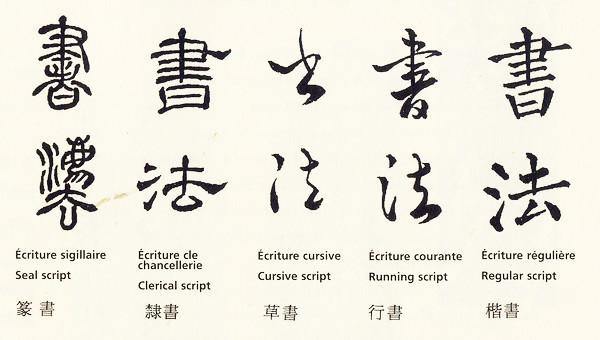 書 書 书 書 書
灋 法 法 法 法
Écriture sigillaire
Seal script
篆書
Écriture cle
chancellerie
Clerical script
隸書
Écriture cursive
Cursive script
草書
Écriture courante
Running script
行書
Écriture régulière
Regular script
楷書